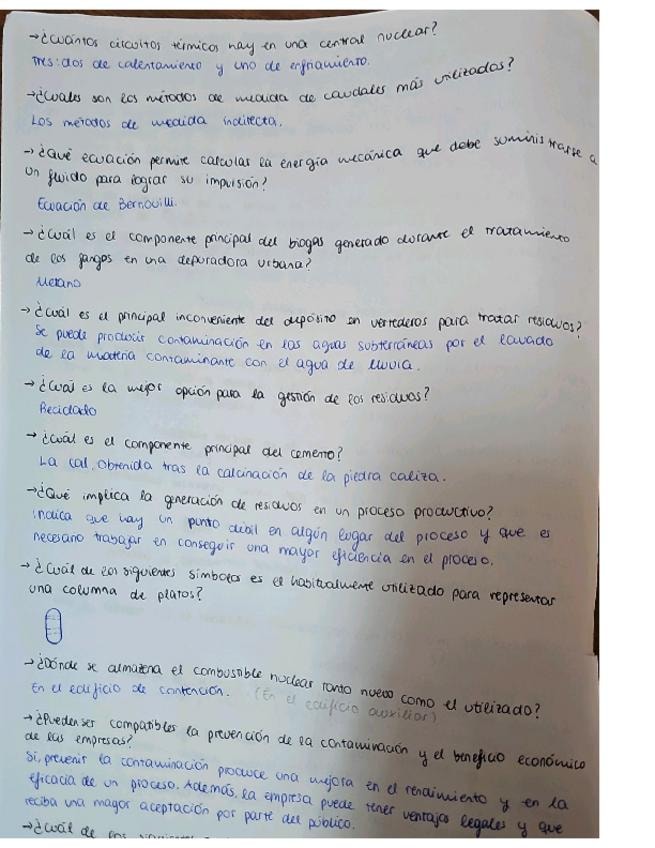 → ¿Cuántos circuitos térmicos hay en una central nuclear?
Tres: dos de calentamiento y uno de enfriamiento.
→ ¿Cuales son los métodos de medida de caudales más utilizados?
Los métodos de medida indirecta.
→ ¿Qué ecuación permite calcular la energía mecánica que debe suministrarse a
un fluido para lograr su impulsión?
Ecuación de Bernouilli.
→ ¿Cuál es el componente principal del biogas generado durante el tratamiento
de los fangos en una depuradora urbana?
Metano
→ ¿Cuál es el principal inconveniente del depósito en vertederos para tratar residuos?
Se puede producir contaminación en las aguas subterráneas por el lavado
de la materia contaminante con el agua de lluvia.
→ ¿Cuál es la mejor opción para la gestión de los residuos?
Reciclado
→ ¿Cuál es el componente principal del cemento?
La cal, obtenida tras la calcinación de la piedra caliza.
→ ¿Qué implica la generación de residuos en un proceso productivo?
indica que hay un punto débil en algún lugar del proceso y que es
necesario trabajar en conseguir una mayor eficiencia en el proceso.
→ ¿Cuál de los siguientes símbolos es el habitualmente utilizado para representar
una columna de platos?
→ ¿Dónde se almazena el combustible nuclear tanto nuevo como el utilizado?
En el edificio de contención. (En el edificio auxiliar)
→ ¿Pueden ser compatibles la prevención de la contaminación y el beneficio económico
de las empresas?
Sí, prevenir la contaminación produce una mejora en el rendimiento y en la
eficacia de un proceso. Además, la empresa puede tener ventajas legales y que
reciba una mayor aceptación por parte del público.
→ ¿Cuál de los